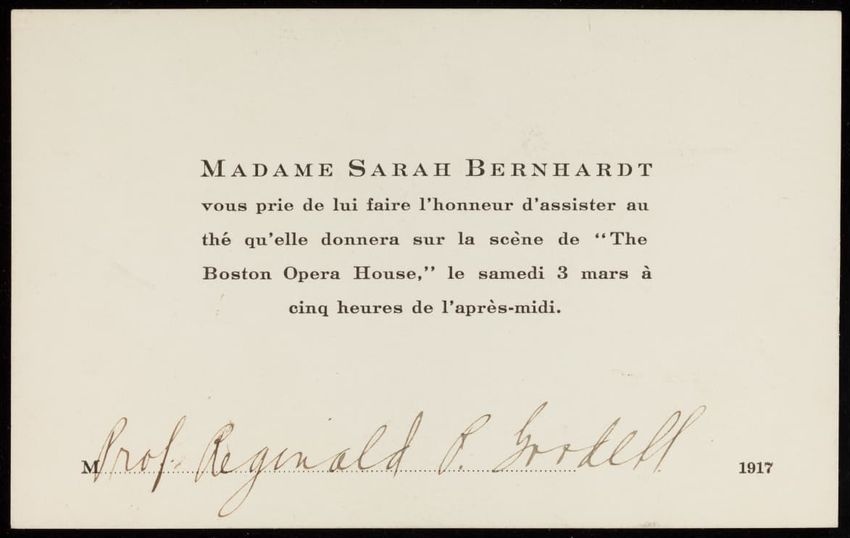 MADAME SARAH BERNHARDT
vous prie de lui faire l'honneur d'assister au
thé qu'elle donnera sur la scène de "The
Boston Opera House," le samedi 3 mars à
cinq heures de l'après-midi.
M Prof. Reginald R. Goodell 1917